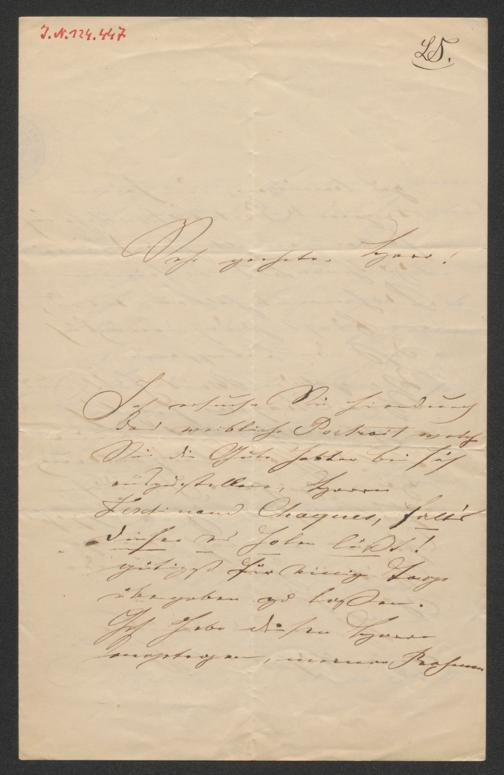 J.N. 124.447
25.
Sehr geehrter Herr!
Ich ersuche Sie hierdurch
das weibliche Portrait welches
Sie die Güte hatten bei sich
auszustellen, Herrn
Ferdinand Chaques, falls
dieser es holen läßt!
gütigst für einige Tage
übergeben zu lassen.
Ich habe diesen Herrn
meinen Rahmen